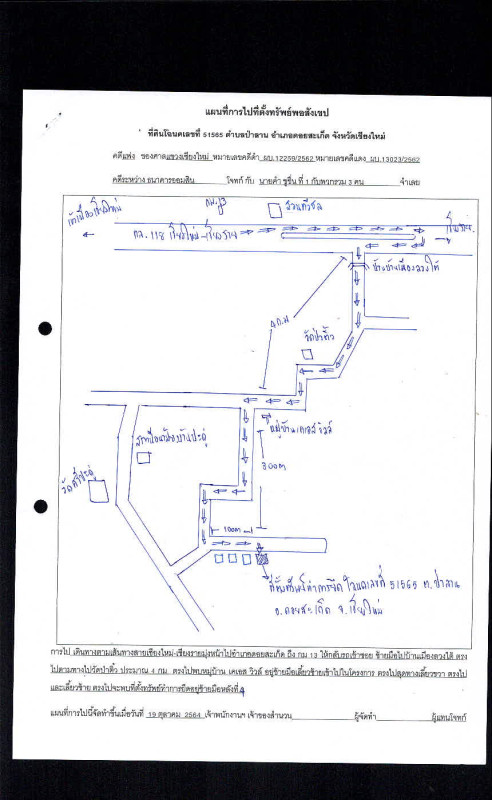 แผนที่การไปที่ตั้งทรัพย์พอสังเขป
ที่ดินโฉนดเลขที่ 51565 ตำบลป่าลาน อำเภอดอยสะเก็ด จังหวัดเชียงใหม่
คดีแพ่ง ของศาลแขวงเชียงใหม่ หมายเลขคดีดำ ผบ.12259/2562 หมายเลขคดีแดง ผบ.13023/2562
คดีระหว่าง ธนาคารออมสิน โจทก์ กับ นายดำ ชูชื่น ที่ 1 กับพวกรวม 3 คน จำเลย
กม.13
เข้าเมืองเชียงใหม่
ทล. 118 เชียงใหม่ - เชียงราย
เชียงราย
4 ก.ม
วัดป่าติ้ว
หมู่บ้านเคเอส วิวล์
300m
100m
ที่ตั้งทรัพย์ทำการยึด โฉนดเลขที่ 51565 ต.ป่าลาน
อ.ดอยสะเก็ด จ.เชียงใหม่
การไป เดินทางตามเส้นทางสายเชียงใหม่-เชียงรายมุ่งหน้าไปอำเภอดอยสะเก็ด ถึง กม 13 ให้กลับรถเข้าซอย ซ้ายมือไปบ้านเมืองลวงใต้ ตรง
ไปตามทางไปวัดป่าติ้ว ประมาณ 4 กม. ตรงไปพบหมู่บ้าน เคเอส วิวล์ อยู่ซ้ายมือเลี้ยวซ้ายเข้าไปในโครงการ ตรงไปสุดทางเลี้ยวขวา ตรงไป
และเลี้ยวซ้าย ตรงไปจะพบที่ตั้งทรัพย์ทำการยึดอยู่ซ้ายมือหลังที่ 4
แผนที่การไปนี้จัดทำขึ้นเมื่อวันที่ 19 ตุลาคม 2564 เจ้าพนักงานฯ เจ้าของสำนวน ผู้จัดทำ ผู้แทนโจทก์